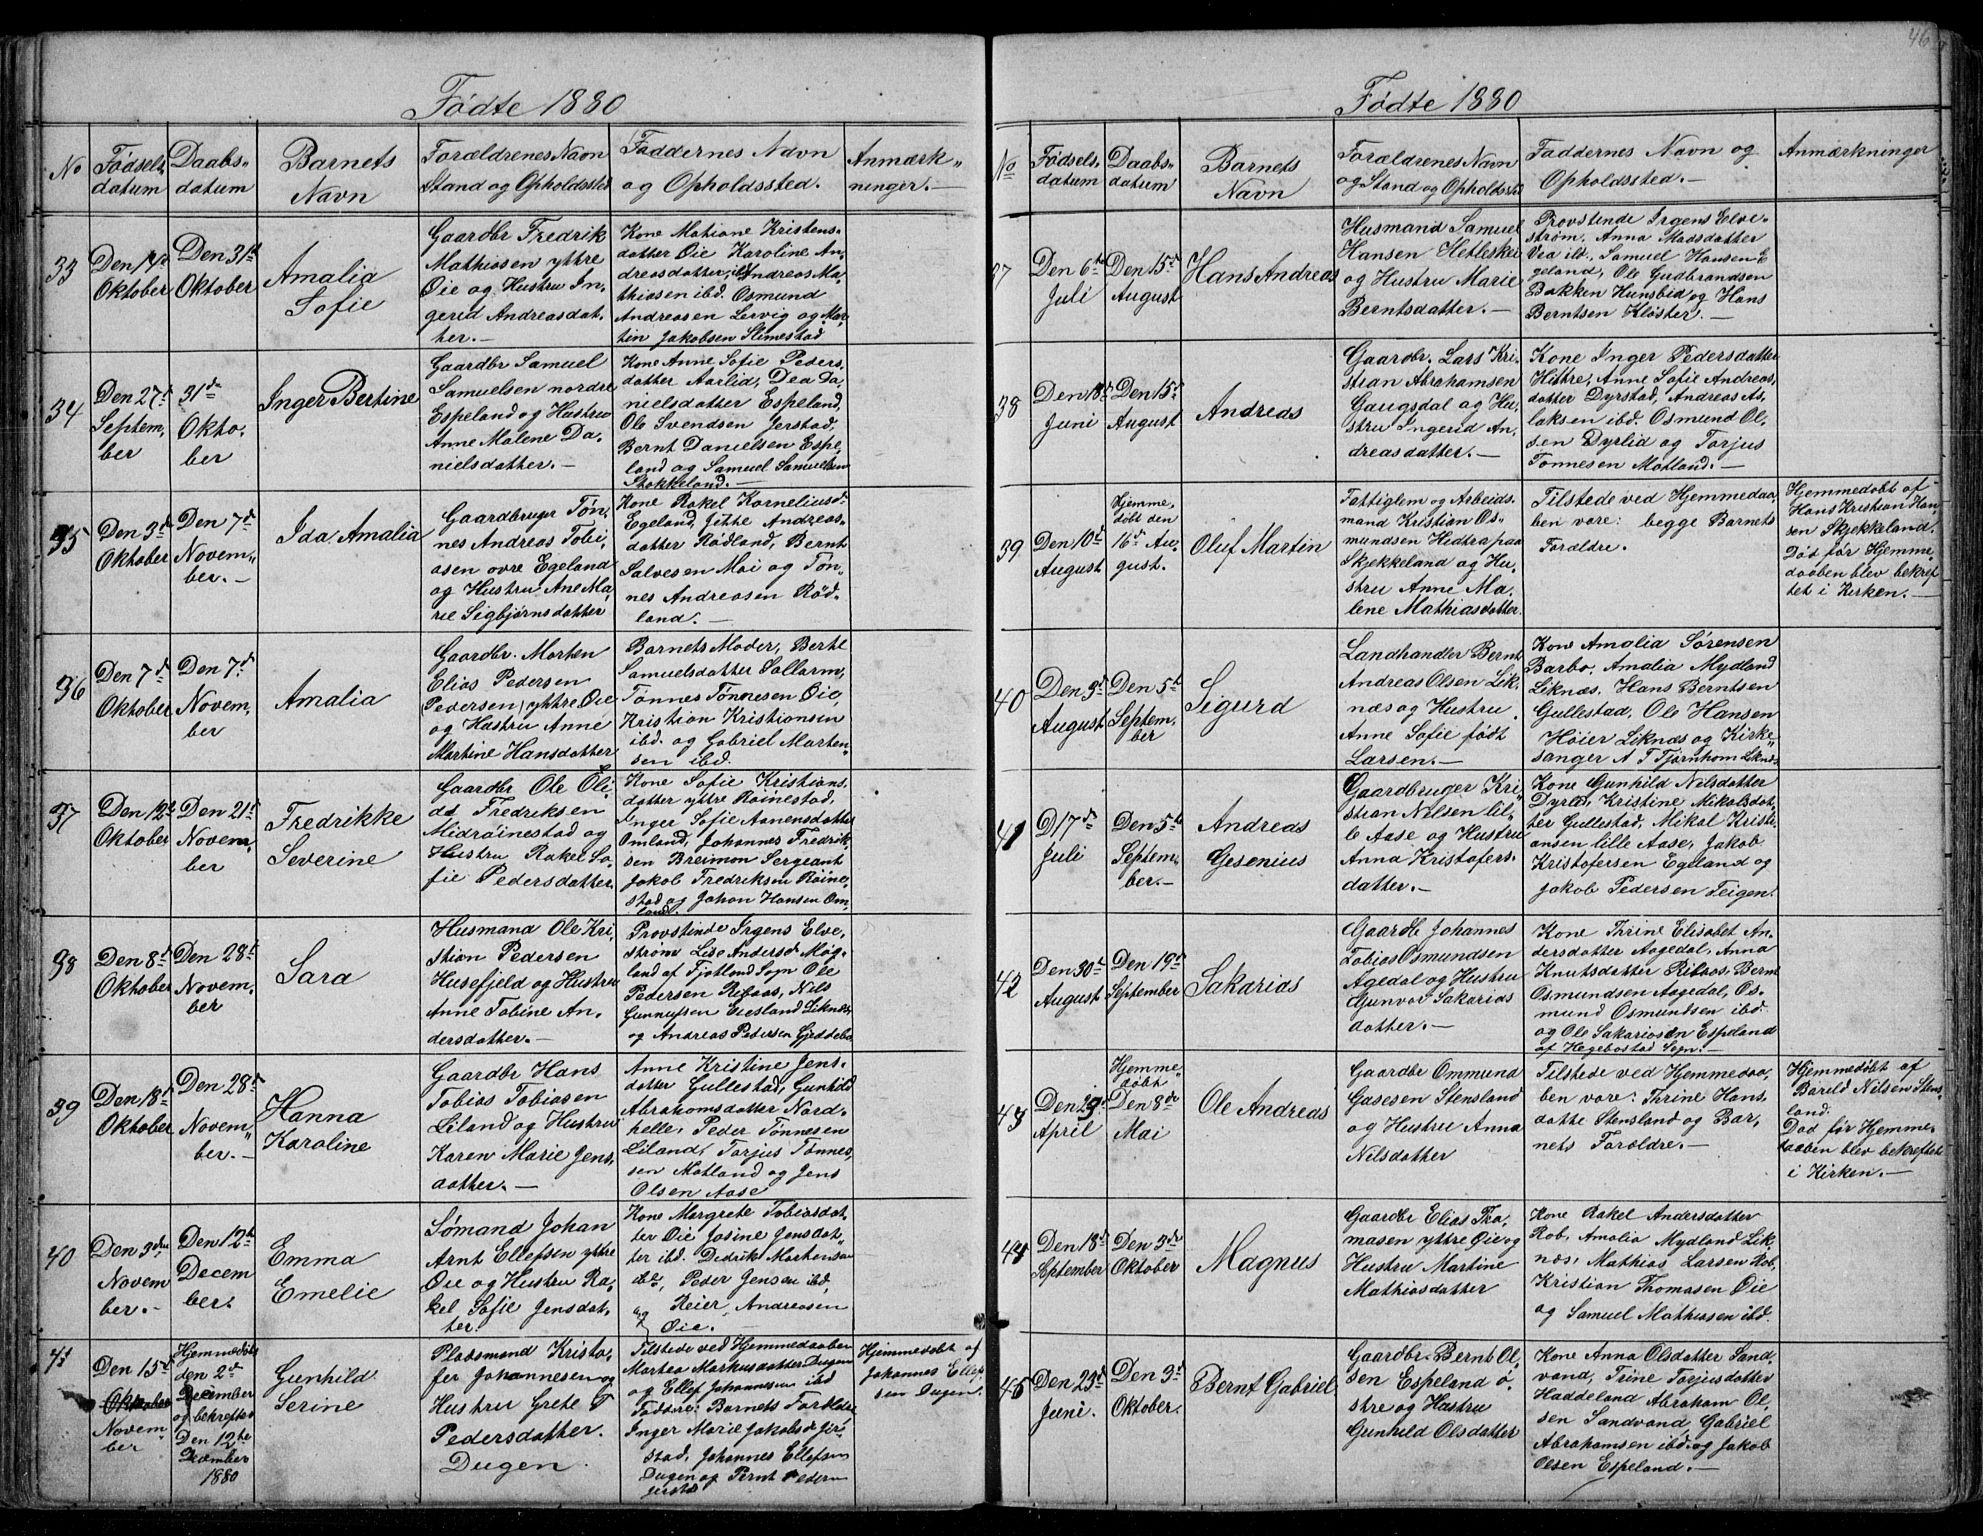 Fødte 1880
No
Fødsels-
datum
Daabs-
datum
Barnets
Navn
Forældrenes Navn
Stand og Opholdssted
Faddernes Navn
og Opholdssted.
Anmærk-
ninger.
33
Den 14de
Oktober
Den 31te
Oktober
Amalia
Sofie
Gaardbr Fredrik
Mathiasen yttre
Øie og Hustru In,
gerid Andreasdat,
ter.
Kone Matiane Kristens-
datter Øie Karoline An,
dreasdatter, ibd Andreas Ma,
thiasen ibd. Osmund
Andreasen Lervig og Mar,
tin Jakobsen Slimestad
34
Den 27d
Septem,
ber
31de
Okto,
ber
Inger Bertine
Gaardbr Samuel
Samuelsen nordre
Espeland og Hustru
Anne Malene Da,
nielsdatter.
Kone Anne Sofie Peders,
datter Aarlid, Dea Da,
nielsdatter Espeland,
Ole Svendsen Jerstad,
Bernt Danielsen Espe,
land og Samuel Samuelsen
Stokkeland.
35
Den 3d
Oktober
Den 7d
Novem-
ber.
Ida Amalia
Gaardbruger Tøn,
nes Andreas Tobi,
asen øvre Egeland
og Hustru Ane Ma,
rie Sigbjørnsdatter
Kone Rakel Korneliusd.
Egeland, Jitte Andreas-
datter Rødland, Bernt
Salvesen Moi og Tøn,
nes Andreasen Rød,
land.
36
Den 7d
Oktober
Den 7d
Novem,
ber
Amalia
Gaardbr. Morten
Elias Pedersen
(Pedersen) yttre Øie
og Hustru Anne
Martine Hansdatter
Barnets Moder, Berte
Samuelsdatter Sollarm,
Tønnes Tønnesen Øie,
Kristian Kristiansen
ibd. og Gabriel Morten,
sen ibd.
37
Den 12te
Oktober
Den 21de
Novem,
ber
Fredrikke
Severine
Gaardbr Ole Oli,
de Fredriksen
Midrøinestad og
Hustru Rakel So,
fie Pedersdatter.
Kone Sofie Kristians,
datter yttre Røinestad,
Inger Sofie Aanensdatter
Omland, Johannes Fredrik,
sen Breimon Sergeant
Jakob Fredriksen Røine,
stad og Johan Hansen Om,
land.
38
Den 8d
Oktober
Den 28d
Novem,
ber
Sara
Husmand Ole Kri,
stian Pedersen
Husefjeld og Hustru
Anne Tobine An,
dersdatter.
Provstinde Irgens Elve,
strøm Lise Andersd Møg,
land af Fjotland Sogn Ole
Pedersen Ribaas, Nils
Gunnufsen Egesland Liknes
og Andreas Pedersen Gjeddebo
39
Den 18d
Oktober
Den 28d
Novem,
ber.
Hanna
Karoline
Gaardbr Hans
Tobias Tobiasen
Liland og Hustru
Karen Marie Jens,
datter.
Anne Kristine Jens,
datter Gullestad, Gunhild
Abrahamsdatter Nord-
helle, Peder Tønnesen
Liland, Torjus Tønnes,
sen Motland og Jens
Olsen Aase
40
Den 3die
Novem
ber.
Den 12te
Decem
ber.
Emma
Emelie
Sømand Johan
Arnt Ellefsen yttre
Øie og Hustru Ra,
kel Sofie Jensdat,
ter.
Kone Margrete Tobiasdat,
ter Øie Josine Jensdat,
ter ibd. Didrik Mathensen
ibd, Peder Jensen ibd,
og Reier Andreasen
Øie.
41
Den 15de
Oktober
Novem
ber
Hjemmedøbt
den 2d
December
og bekreftes
Den 12te
December
1880
Gunhild
Serine
Pladsmand Kristo,
fer Johannesen og
Hustru Grete T
Pedersdatter.
Dugen.
Tilstede ved Hjemmedaaben
Martea Markusdatter Dugen
og Ellef Johannesen ibd
Faddre: Barnets Forældre
Inger Marie Jakobsd Jer,
stad, Johannes Ellefsen
Dugen og Bernt Pedersen
Jerstad
Hjemmedøbt af
Johannes Ellef
sen Dugen
46
Fødte 1880
No
Fødsels-
datum
Daabs-
datum
Barnets
Navn
Forældrenes Navn
og Stand og Opholdssted
Faddernes Navn og
Opholdssted.
Anmærkninger
37
Den 6te
Juli
Den 15d
August
Hans Andreas
Husmand Samuel
Hansen Hetleskei
og Hustru Marie
Berntsdatter.
Provstinde Irgens Elve-
strøm, Anna Madsdatter
Vea ibd, Samuel Hansen E
geland, Ole Gudbrandsen
Bakken Hunsbid og Hans
Berntsen Kloster.
38
Den 18d
Juni
Den 15d
August
Andreas
Gaardbr. Lars Kri,
stian Abrahamsen
Gaugsdal og Hu,
stru Ingerid An,
dreasdatter.
Kone Inger Pedersdatter
Hittre, Anne Sofie Andreas,
datter Dyrstad, Andreas As,
laksen ibd. Osmund Ol,
sen Dyrlid og Torjus
Tønnesen Motland.
39
Den 10d
August
Hjemme,
døbt den
16d Au,
gust.
Oluf Martin
Fattiglem og Arbeids,
mand Kristian Os,
mundsen Hedtra paa
Skjekkeland og Hu,
stru Anne Ma,
lene Mathiasdatter.
Tilstede ved Hjemmedaa,
ben vare: begge Barnets
Forældre.
Hjemmedøbt af
Hans Kristian Han,
sen Skjekkeland.
Død før Hjemme,
daaben blev bekref
tet i Kirken.
40
Den 3d
August
Den 5t
Septem,
ber
Sigurd
Landhandler Bernt
Andreas Olsen Lik,
næs og Hustru
Anne Sofie født
Larsen.
Kone Amalia Sørensen
Barbo, Amalia Mydland
Liknæs, Hans Berntsen
Gullestad, Ole Hansen
Høier Liknæs og Kirke-
sanger A T Tjørnhom Liknæs
41
D 17de
Juli
Den 5te
Septem,
ber.
Andreas
Gesenius
Gaardbruger Kri,
stian Nilsen lil,
le Aase og Hustru
Anna Kristofers,
datter.
Kone Gunhild Nilsdatter
Dyrlid, Kristine Mikalsdat,
ter Gullestad, Mikal Kristi,
ansen lille Aase, Jakob
Kristofersen Egeland og
Jakob Pedersen Teigen.
42
Den 30t
August
Den 19de
September
Sakarias
Gaardb Johannes
Tobias Osmundsen
Agedal og Hustru
Gunvor Sakarias
datter.
Kone Thrine Elisabet An,
dersdatter Aagedal, Anna
Knutsdatter Ribaas, Bernt
Osmundsen Aagedal, Os,
mund Osmundsen ibd.
og Ole Sakariasen Espeland
af Hegebostad Sogn.
43
Den 29d
April
Hjemme-
døbt
Den 8de
Mai
Ole Andreas
Gaardbr Ommund
Gasesen Stensland
og Hustru Anna
Nilsdatter
Tilstede ved Hjemmedaa,
ben vare: Thrine Hans,
datte Stensland og Bar,
nets Forældre.
Hjemmedøbt af
Bareld Nilsen Stens,
land.
Død før Hjemme,
daaben blev bekreftet
i Kirken.
44
Den 18d
September
Den 3de
Oktober
Magnus
Gaardbr Elias Tho,
masen yttre Øie og
Hustru Martine
Mathiasdatter
Kone Rakel Andersdatter
Rob, Amalia Mydland Lik,
næs, Mathias Larsen Rob,
Kristian Thomasen Øie
og Samuel Mathiasen ibd.
45
Den 23d
Juni.
Den 3d
Oktober.
Bernt Gabriel
Gaardbr. Bernt Ol,
sen Espeland ø,
stre og Hustru
Gunhild Olsdatter
Kone Anna Olsdatter Sand,
vand, Trine Torjusdatter
Haddeland Abraham Ol,
sen Sandvand, Gabriel
Abrahamsen ibd. og Jakob
Olsen Espeland.